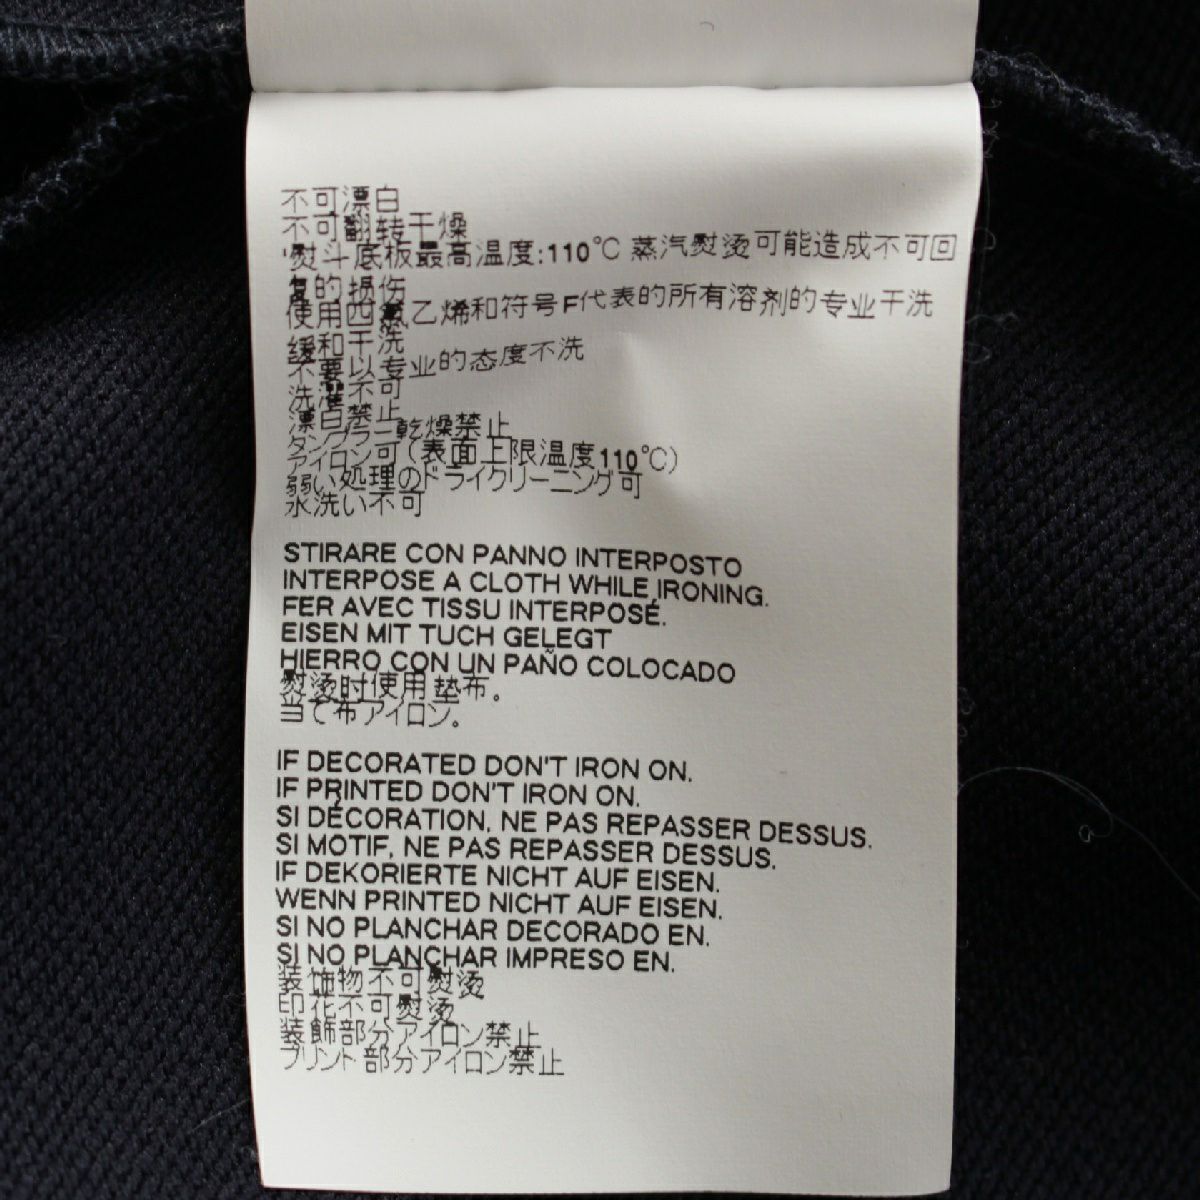 不可漂白
不可翻转干燥
熨斗底板最高温度:110℃ 蒸汽熨烫可能造成不可回
复的损伤
使用四氯乙烯和符号F代表的所有溶剂的专业干洗
缓和干洗
不要以专业的态度不洗
洗濯不可
漂白禁止
タンブラー乾燥禁止
アイロン可(表面上限温度110℃)
弱い処理のドライクリーニング可
水洗い不可
STIRARE CON PANNO INTERPOSTO
INTERPOSE A CLOTH WHILE IRONING.
FER AVEC TISSU INTERPOSÉ.
EISEN MIT TUCH GELEGT
HIERRO CON UN PAÑO COLOCADO
熨烫时使用垫布。
当て布アイロン。
IF DECORATED DON'T IRON ON.
IF PRINTED DON'T IRON ON.
SI DÉCORATION, NE PAS REPASSER DESSUS.
SI MOTIF, NE PAS REPASSER DESSUS.
IF DEKORIERTE NICHT AUF EISEN.
WENN PRINTED NICHT AUF EISEN.
SI NO PLANCHAR DECORADO EN.
SI NO PLANCHAR IMPRESO EN.
装饰物不可熨烫
印花不可熨烫
装飾部分アイロン禁止
プリント部分アイロン禁止